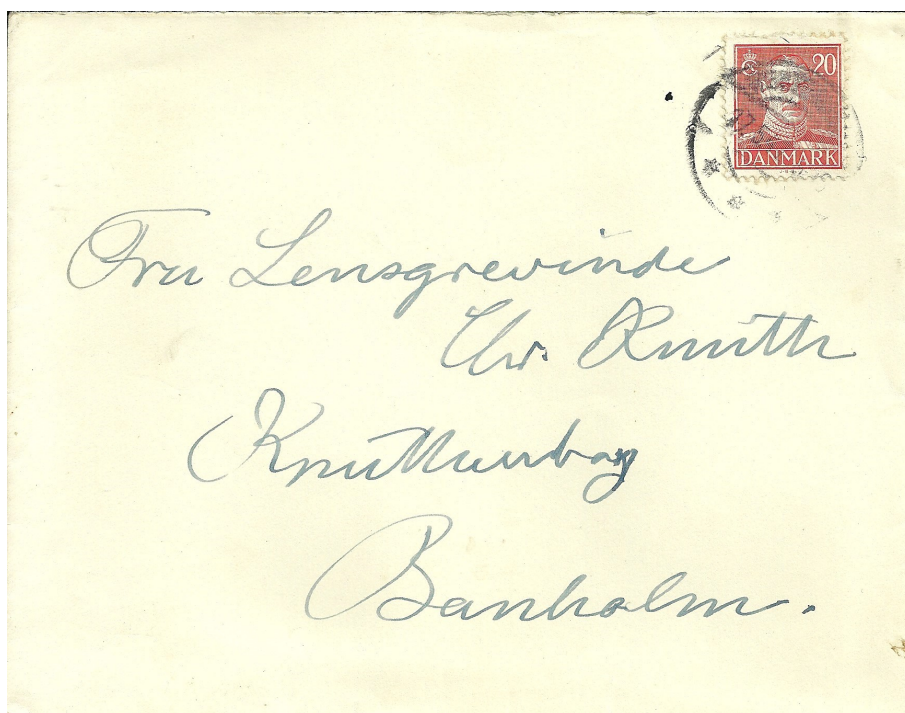 20
DANMARK
Fru Lensgrevinde
Knuth
Knuthenborg
Banholm.